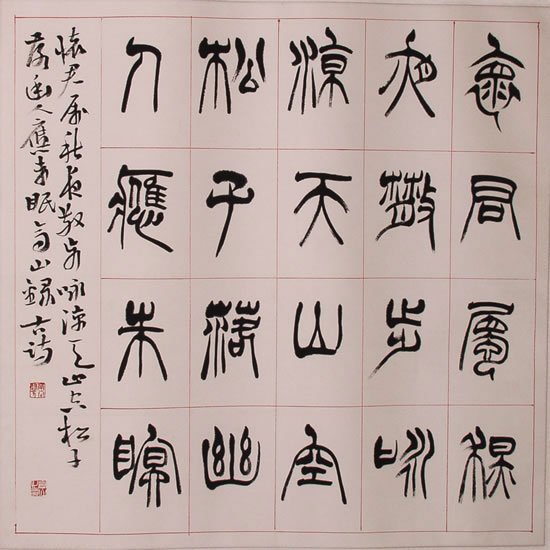 褱君屬秋
夜散步詠
涼天山空
松子落幽
人應未眠
懷君屬秋夜散步詠涼天山空松子
落幽人應未眠山錄古詩